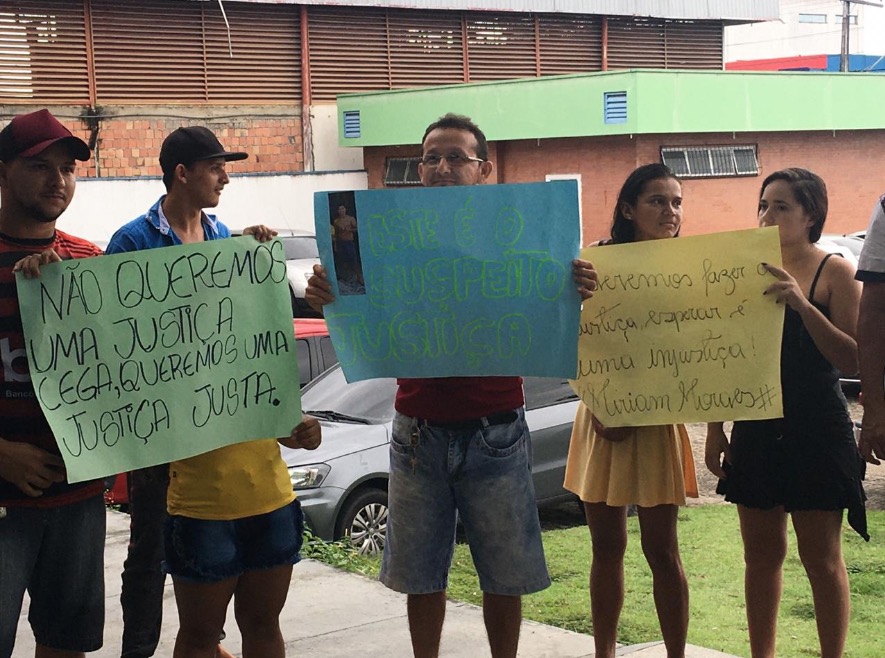 NÃO QUEREMOS
UMA JUSTIÇA
CEGA, QUEREMOS UMA
JUSTIÇA JUSTA.
ESTE É O
SUSPEITO
JUSTIÇA
Queremos fazer a
justiça, esperar é
uma injustiça!
Miriam Moraes#
Banco